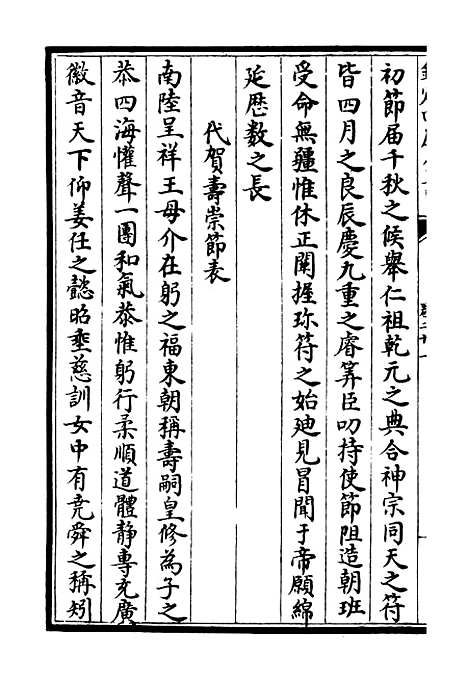 初節届千秋之候舉仁祖乾元之典合神宗同天之符
皆四月之良辰慶九重之睿筭臣叨持使節阻造朝班
受命無疆惟休正開握珍符之始廸見冒聞于帝願綿
延歴数之長
代賀壽崇節表
南陸呈祥王母介在躬之福東朝稱壽嗣皇修為子之
恭四海懽聲一團和氣恭惟躬行柔順道體静專克廣
徽音天下仰姜任之懿昭垂慈訓女中有堯舜之稱矧